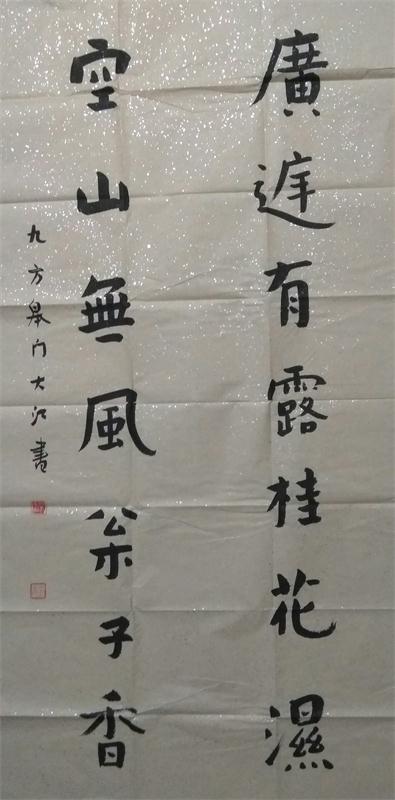 廣庭有露桂花濕
空山無風枀子香
九方皋门大江書